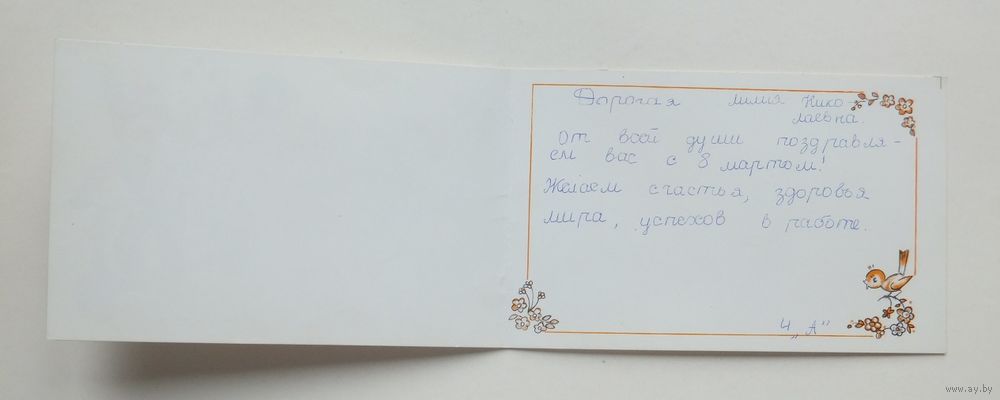 Дорогая лилия Нико-
лаевна.
От всей души поздравля-
ем вас с 8 мартом!
Желаем счастья, здоровья
мира, успехов в работе.
4 „А”
www.ay.by